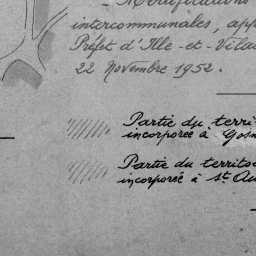 - Rectifications
intercommunales, app
Préfet d'Ille-et-Vila
22 Novembre 1952.
Partie du territ
incorporée à Gosn
Partie du territo
incorporée à St. Au